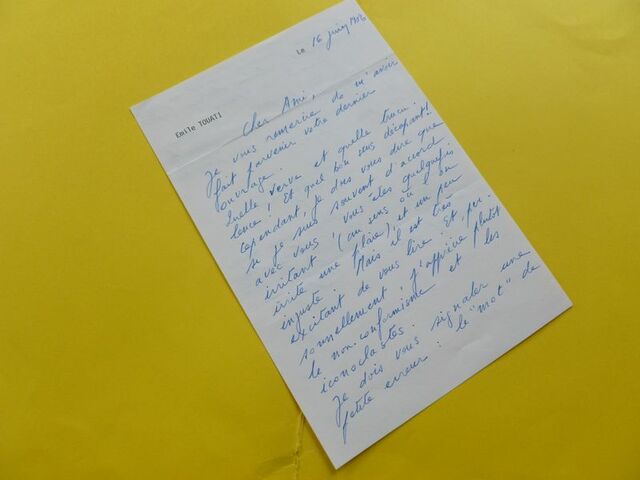 Le 16 juin 1986
Emile TOUATI
Cher Ami,
Je vous remercie de m'avoir
fait parvenir votre dernier
ouvrage.
Quelle verve et quelle trucu-
lence ! Et quel bon sens décapant !
Cependant, je dois vous dire que
si je suis souvent d'accord
avec vous, vous êtes quelquefois
irritant (au sens où l'on
irrite une plaie) et un peu
injuste. Mais il est très
excitant de vous lire. Et, per-
sonnellement, j'apprécie plutôt
le non-conformisme et les
iconoclastes.
Je dois vous signaler une
petite erreur : le "mot" de